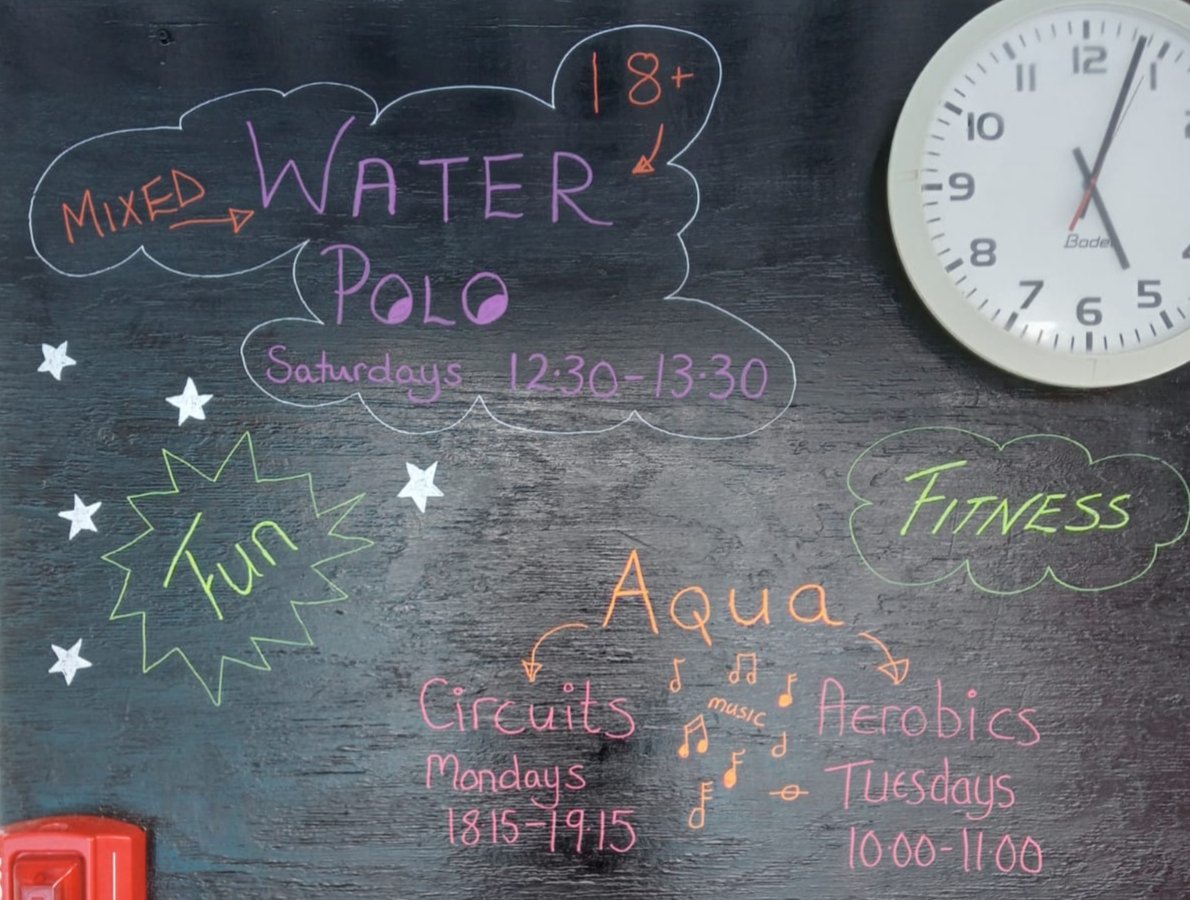 18+
MIXED WATER
POLO
Saturdays 12.30-13.30
Fun
FITNESS
AQUA
Circuits music Aerobics
Mondays TUESdays
18 15-19.15 10.00-11 00
12
1
11
10
9
8
7
6
5